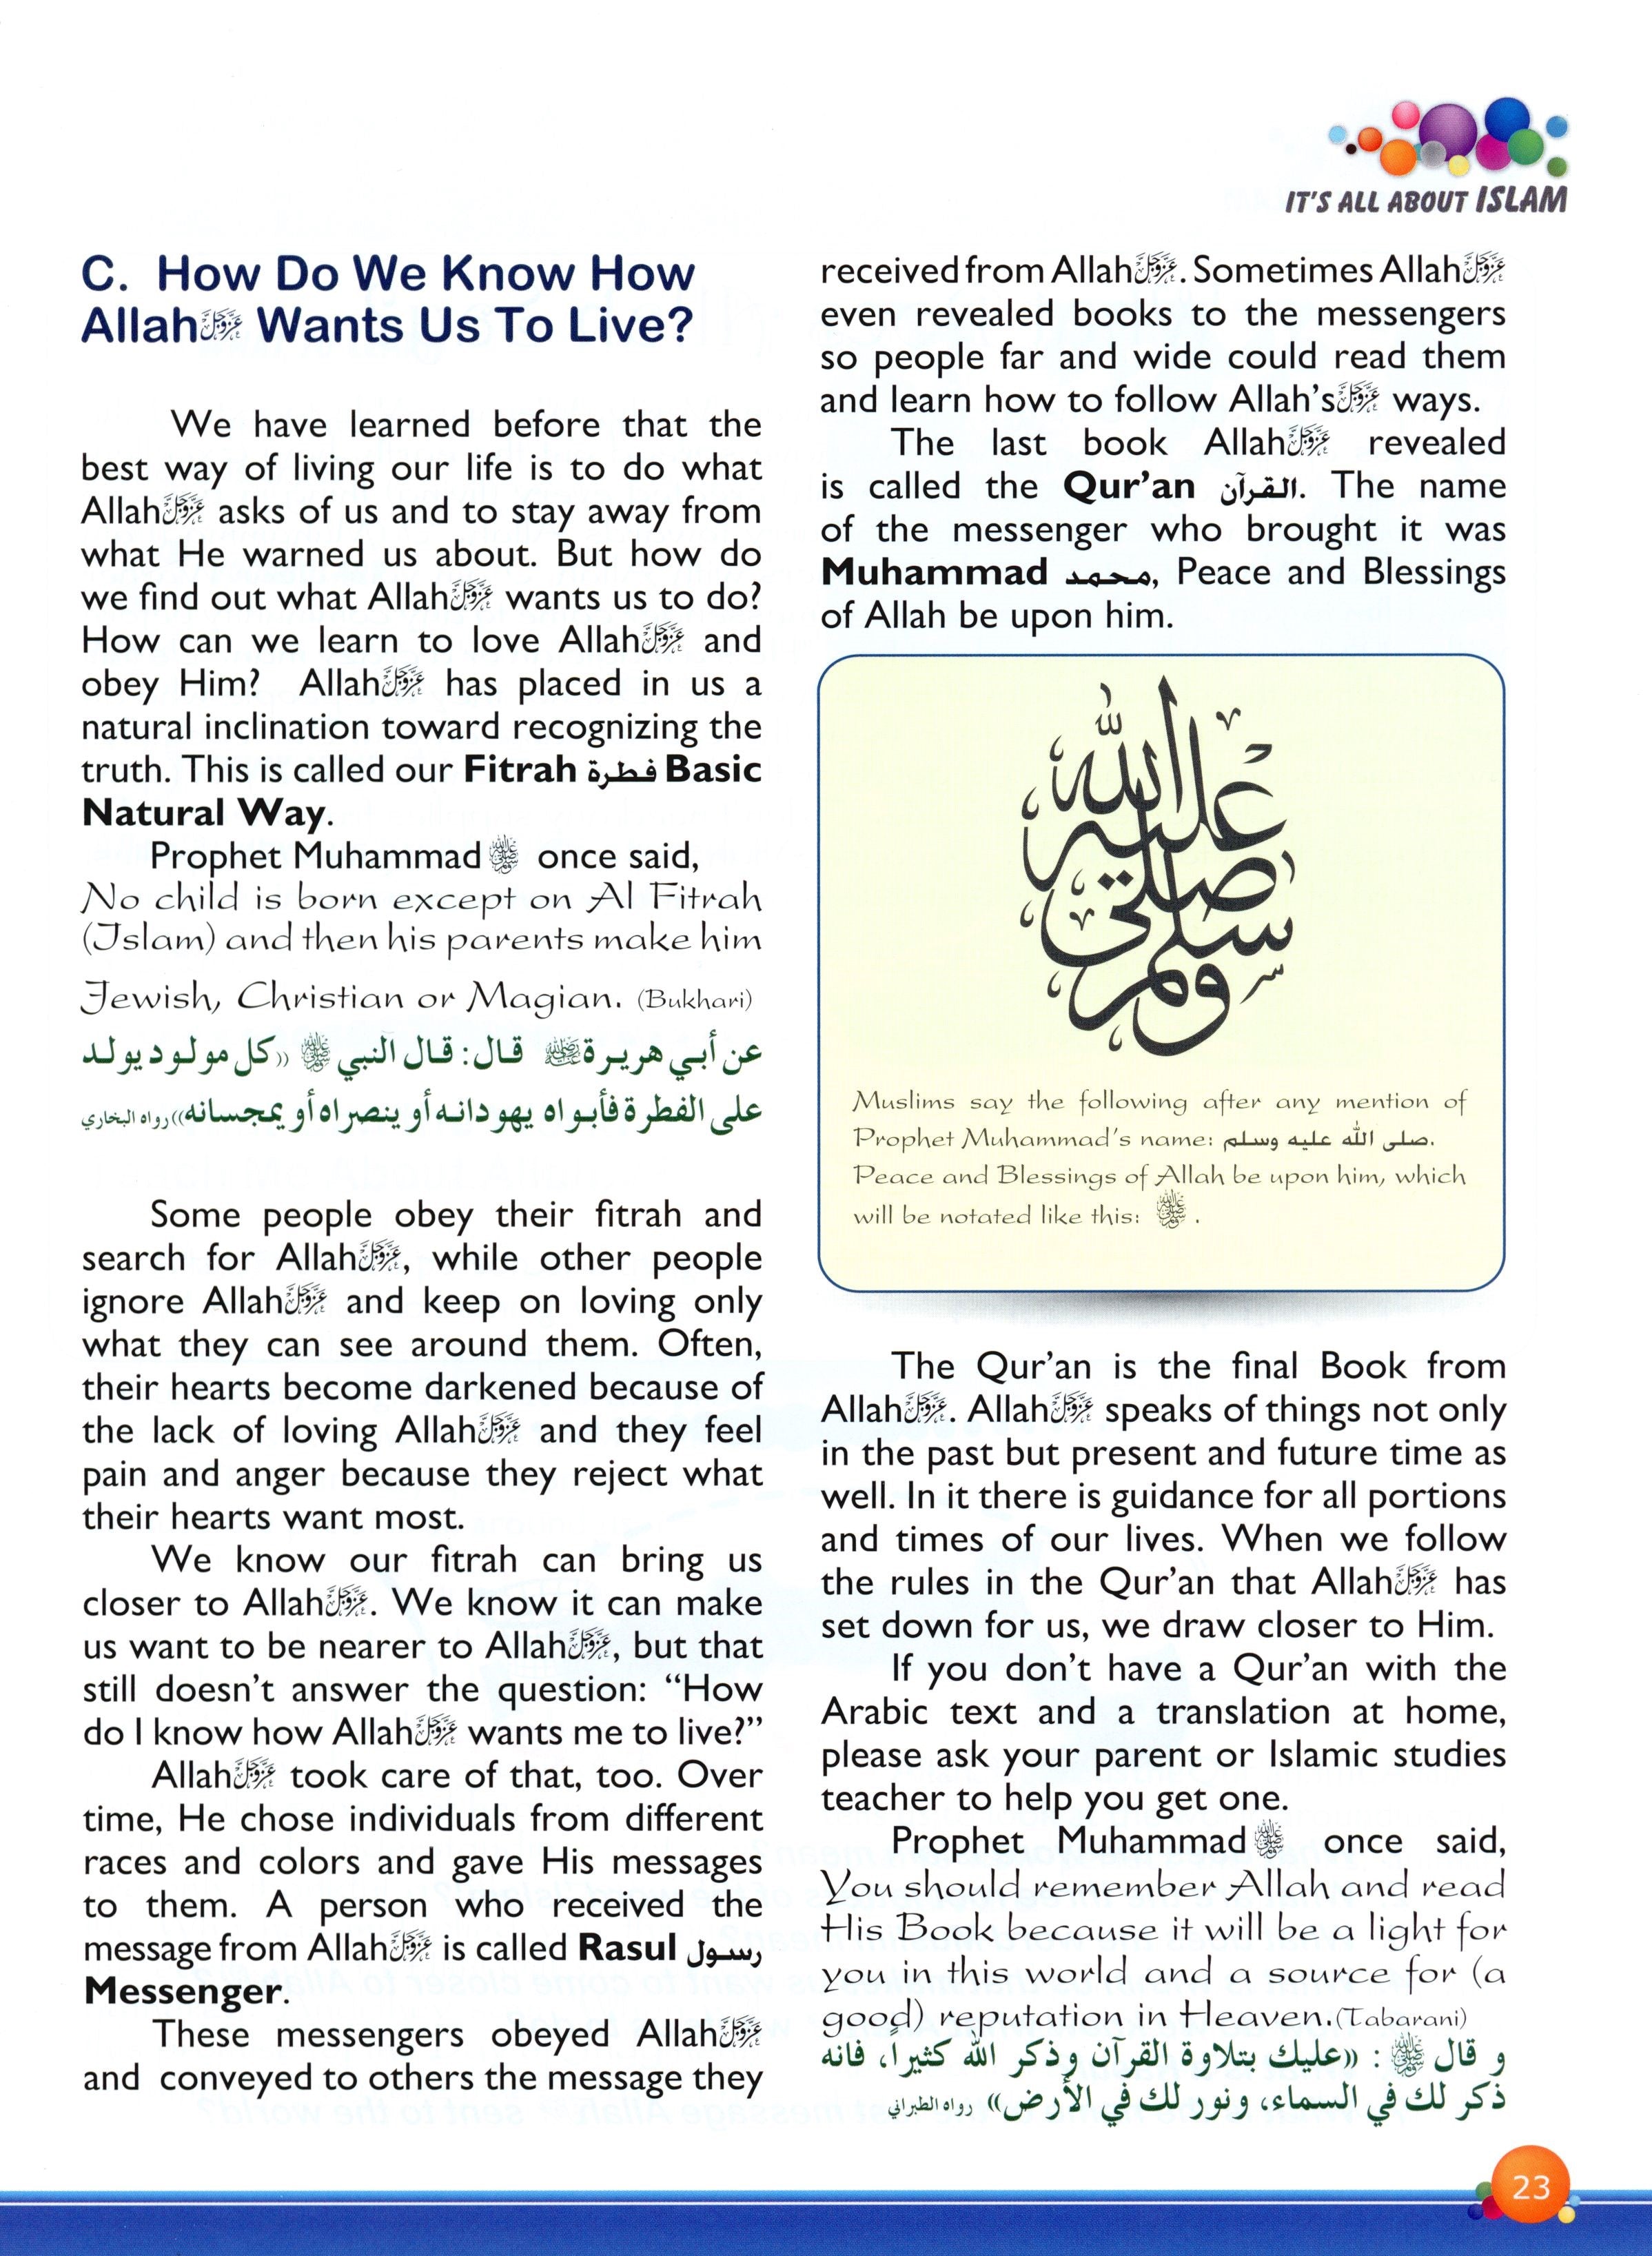 IT'S ALL ABOUT ISLAM
C. How Do We Know How
Allah عَزَّوَجَلَّ Wants Us To Live?
We have learned before that the
best way of living our life is to do what
Allah عَزَّوَجَلَّ asks of us and to stay away from
what He warned us about. But how do
we find out what Allah عَزَّوَجَلَّ wants us to do?
How can we learn to love Allah عَزَّوَجَلَّ and
obey Him? Allah عَزَّوَجَلَّ has placed in us a
natural inclination toward recognizing the
truth. This is called our Fitrah فطرة Basic
Natural Way.
Prophet Muhammad ﷺ once said,
No child is born except on Al Fitrah
(Islam) and then his parents make him
Jewish, Christian or Magian. (Bukhari)
عن أبي هريرة رضي الله عنه قال: قال النبي ﷺ ((كل مولود يولد
على الفطرة فأبواه يهودانه أو ينصراه أو يمجسانه)) رواه البخاري
Some people obey their fitrah and
search for Allah عَزَّوَجَلَّ, while other people
ignore Allah عَزَّوَجَلَّ and keep on loving only
what they can see around them. Often,
their hearts become darkened because of
the lack of loving Allah عَزَّوَجَلَّ and they feel
pain and anger because they reject what
their hearts want most.
We know our fitrah can bring us
closer to Allah عَزَّوَجَلَّ. We know it can make
us want to be nearer to Allah عَزَّوَجَلَّ, but that
still doesn't answer the question: “How
do I know how Allah عَزَّوَجَلَّ wants me to live?”
Allah عَزَّوَجَلَّ took care of that, too. Over
time, He chose individuals from different
races and colors and gave His messages
to them. A person who received the
message from Allah عَزَّوَجَلَّ is called Rasul رسول
Messenger.
These messengers obeyed Allah عَزَّوَجَلَّ
and conveyed to others the message they
received from Allah عَزَّوَجَلَّ. Sometimes Allah عَزَّوَجَلَّ
even revealed books to the messengers
so people far and wide could read them
and learn how to follow Allah's عَزَّوَجَلَّ ways.
The last book Allah عَزَّوَجَلَّ revealed
is called the Qur'an القرآن. The name
of the messenger who brought it was
Muhammad محمد, Peace and Blessings
of Allah be upon him.
صلى الله عليه وسلم
Muslims say the following after any mention of
Prophet Muhammad's name: صلى الله عليه وسلم.
Peace and Blessings of Allah be upon him, which
will be notated like this: ﷺ .
The Qur'an is the final Book from
Allah عَزَّوَجَلَّ. Allah عَزَّوَجَلَّ speaks of things not only
in the past but present and future time as
well. In it there is guidance for all portions
and times of our lives. When we follow
the rules in the Qur'an that Allah عَزَّوَجَلَّ has
set down for us, we draw closer to Him.
If you don't have a Qur'an with the
Arabic text and a translation at home,
please ask your parent or Islamic studies
teacher to help you get one.
Prophet Muhammad ﷺ once said,
You should remember Allah and read
His Book because it will be a light for
you in this world and a source for (a
good) reputation in Heaven. (Tabarani)
و قال ﷺ : ((عليك بتلاوة القرآن وذكر الله كثيراً، فانه
ذكر لك في السماء، ونور لك في الأرض)) رواه الطبراني
23